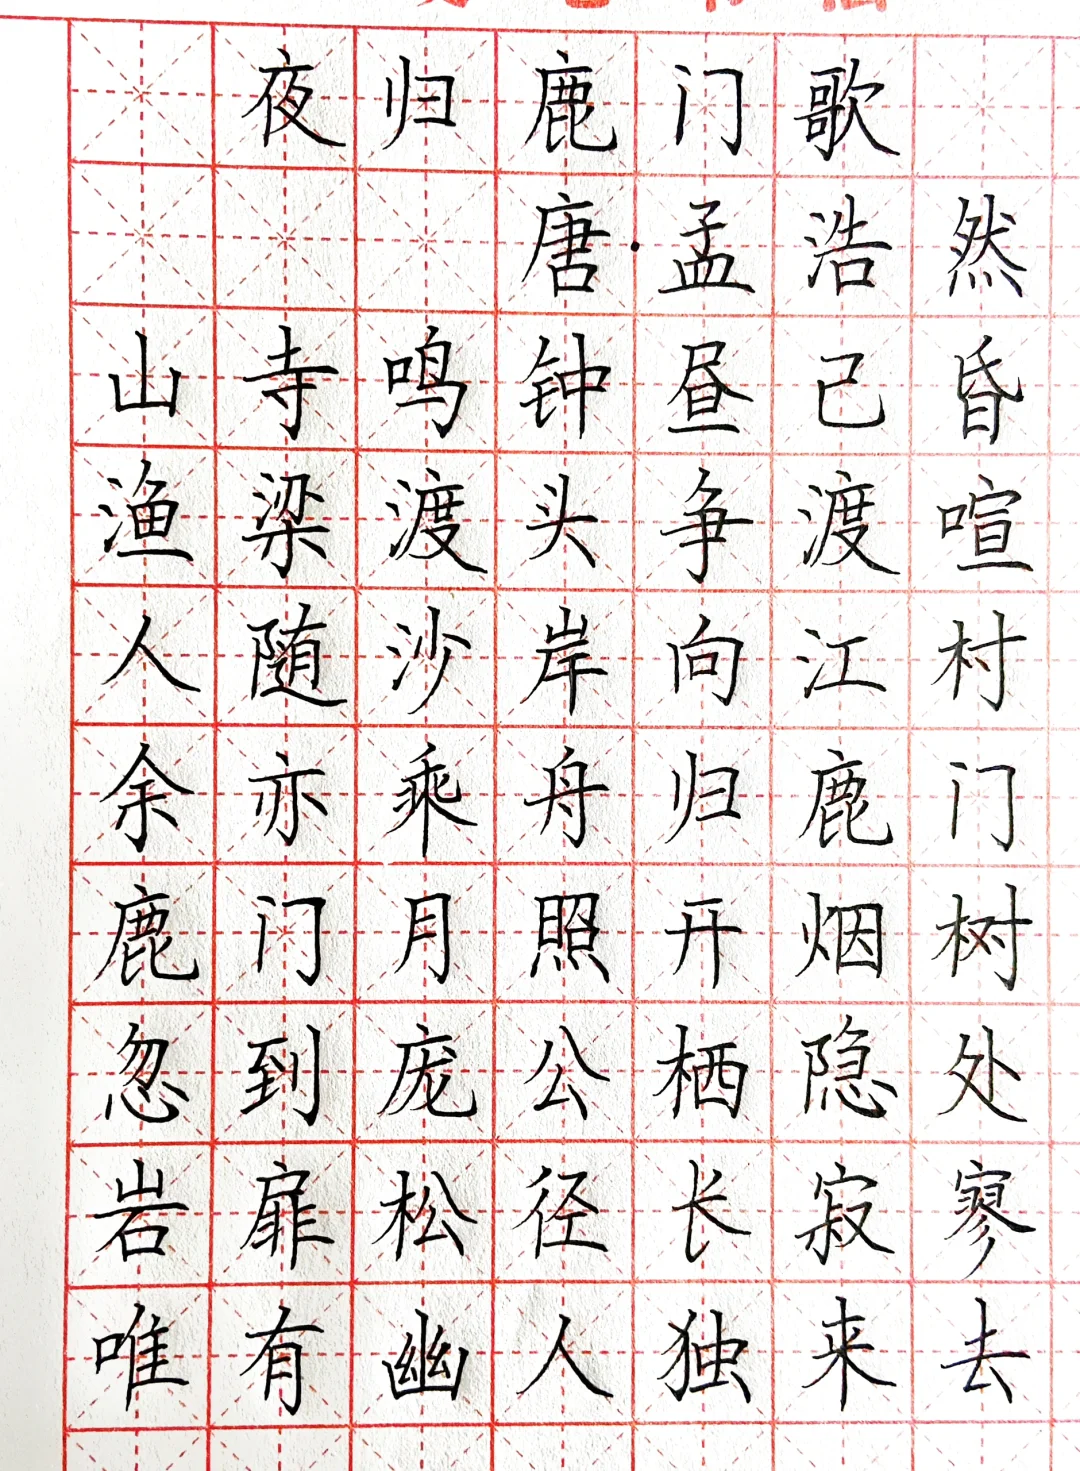 夜归鹿门歌
唐·孟浩然
山寺鸣钟昼已昏
渔梁渡头争渡喧
人随沙岸向江村
余亦乘舟归鹿门
鹿门月照开烟树
忽到庞公栖隐处
岩扉松径长寂寥
唯有幽人独来去